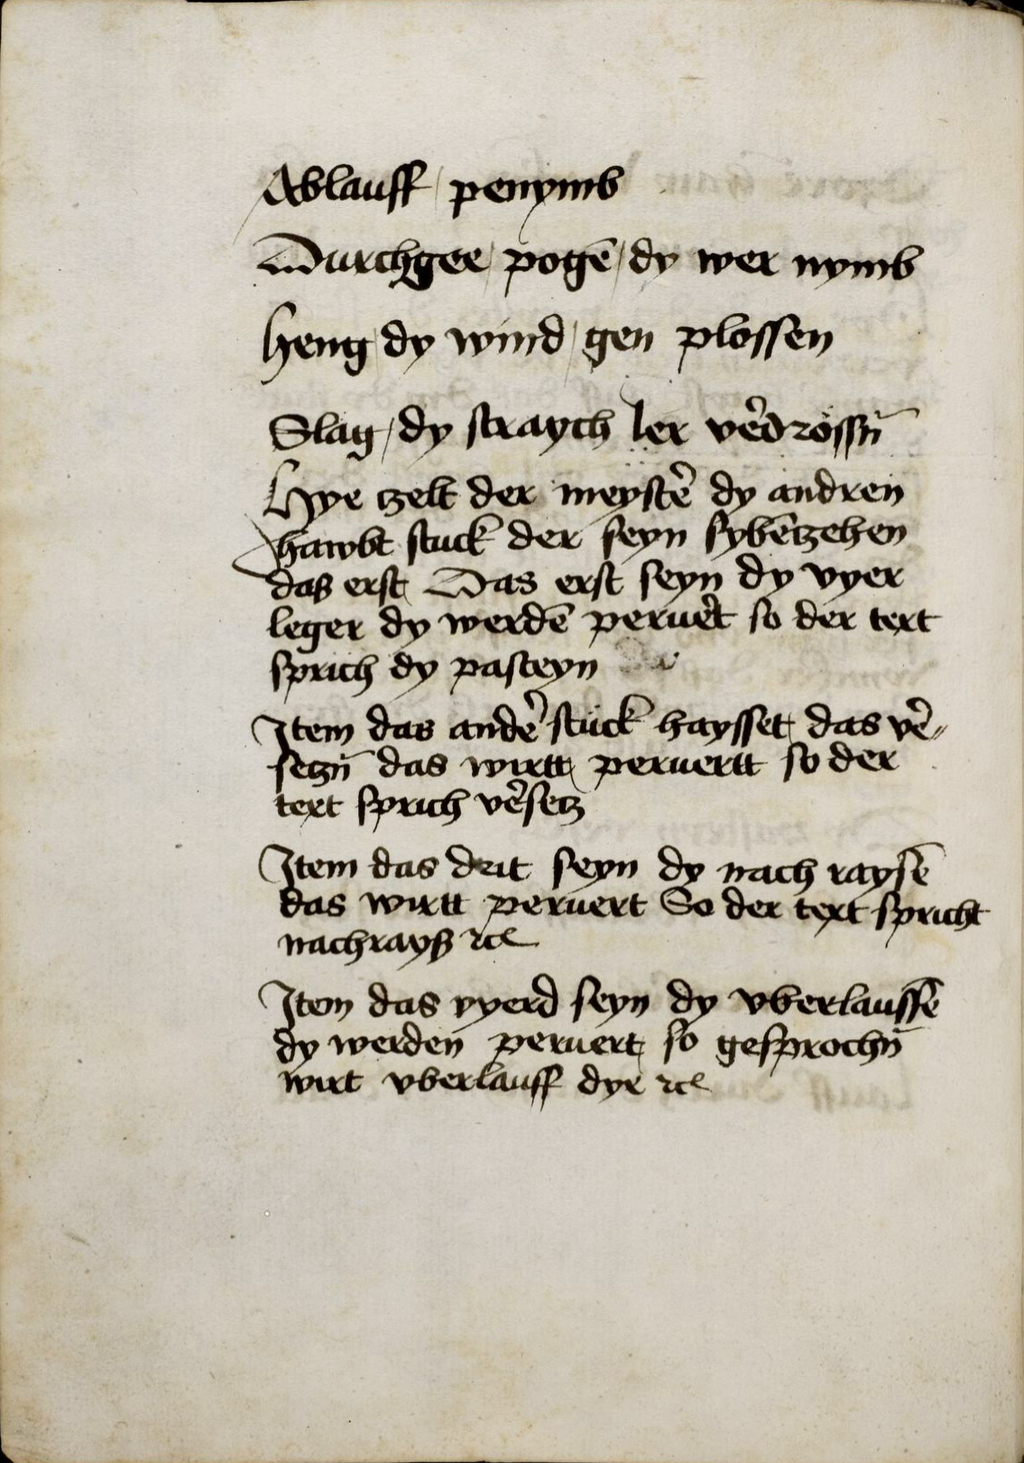 Ablauff / penymb
Durchgee / pogē / dy wer nymb
heng / dy wind / gen plossen
Slag / dy straych ler v̉edrössn̄
Hye tzelt der meystẻ dy andren
hawbt stuck der seyn sybētzehen
daß erst Das erst seyn dy vyer
leger dy werdē peruẻt so der text
sprich dy pasteyn
Item das andẻ stuck haysset das vẻ〃
setzn̄ das wirtt peruertt so der
text sprich vẻsetz
Item das drit seyn dy nach raysē
das wirtt peruert So der text spricht
nachrayß ꝛcꝭ
Item das vyerd seyn dy vberlauffē
dy werden peruert so gesprochn̄
wirt vberlauff dye ꝛcꝭ